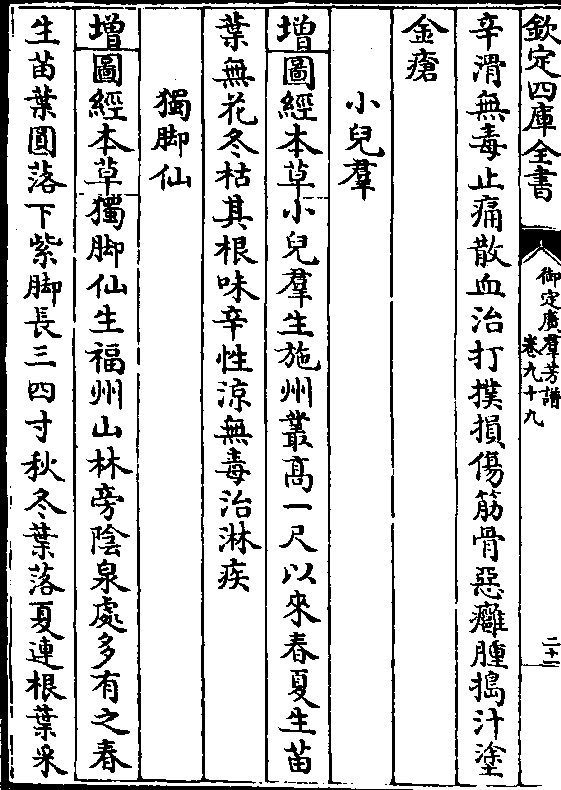 欽定四庫全書
御定廣羣芳譜
卷九十九
二十一
辛滑無毒止痛散血治打撲損傷筋骨惡癰腫搗汁塗
金瘡
小兒羣
增圖經本草小兒羣生施州叢高一尺以來春夏生苗
葉無花冬枯其根味辛性涼無毒治淋疾
獨脚仙
增圖經本草獨脚仙生福州山林旁陰泉處多有之春
生苗葉圓落下紫脚長三四寸秋冬葉落夏連根葉采